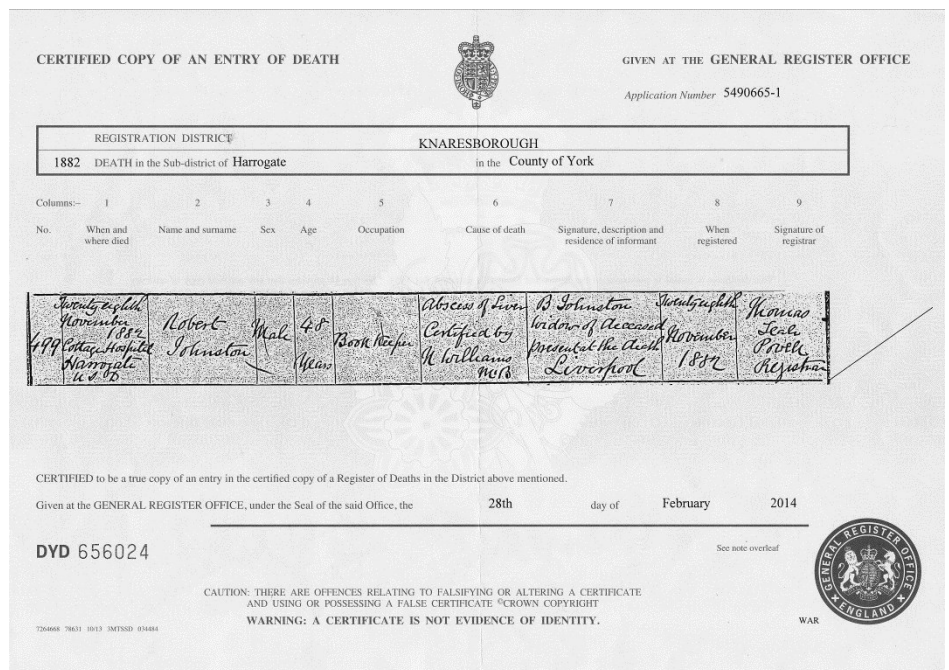 CERTIFIED COPY OF AN ENTRY OF DEATH
GIVEN AT THE GENERAL REGISTER OFFICE
Application Number 5490665-1
REGISTRATION DISTRICT KNARESBOROUGH
1882 DEATH in the Sub-district of Harrogate in the County of York
Columns:- 1 2 3 4 5 6 7 8 9
No. When and where died Name and surname Sex Age Occupation Cause of death Signature, description and residence of informant When registered Signature of registrar
499
Twenty eighth
November
1882
Cottage Hospital
Harrogate
U S D
Robert
Johnston
Male
48
Years
Book Keeper
Abscess of Liver
Certified by
N Williams
MB
B Johnston
Widow of deceased
present at the death
Liverpool
Twenty eighth
November
1882
Thomas
Teale
Powell
Registrar
CERTIFIED to be a true copy of an entry in the certified copy of a Register of Deaths in the District above mentioned.
Given at the GENERAL REGISTER OFFICE, under the Seal of the said Office, the 28th day of February 2014
DYD 656024
See note overleaf
CAUTION: THERE ARE OFFENCES RELATING TO FALSIFYING OR ALTERING A CERTIFICATE
AND USING OR POSSESSING A FALSE CERTIFICATE ©CROWN COPYRIGHT
WARNING: A CERTIFICATE IS NOT EVIDENCE OF IDENTITY.
WAR
7264668 78631 10/13 3MTSSD 034484
GENERAL REGISTER OFFICE
ENGLAND